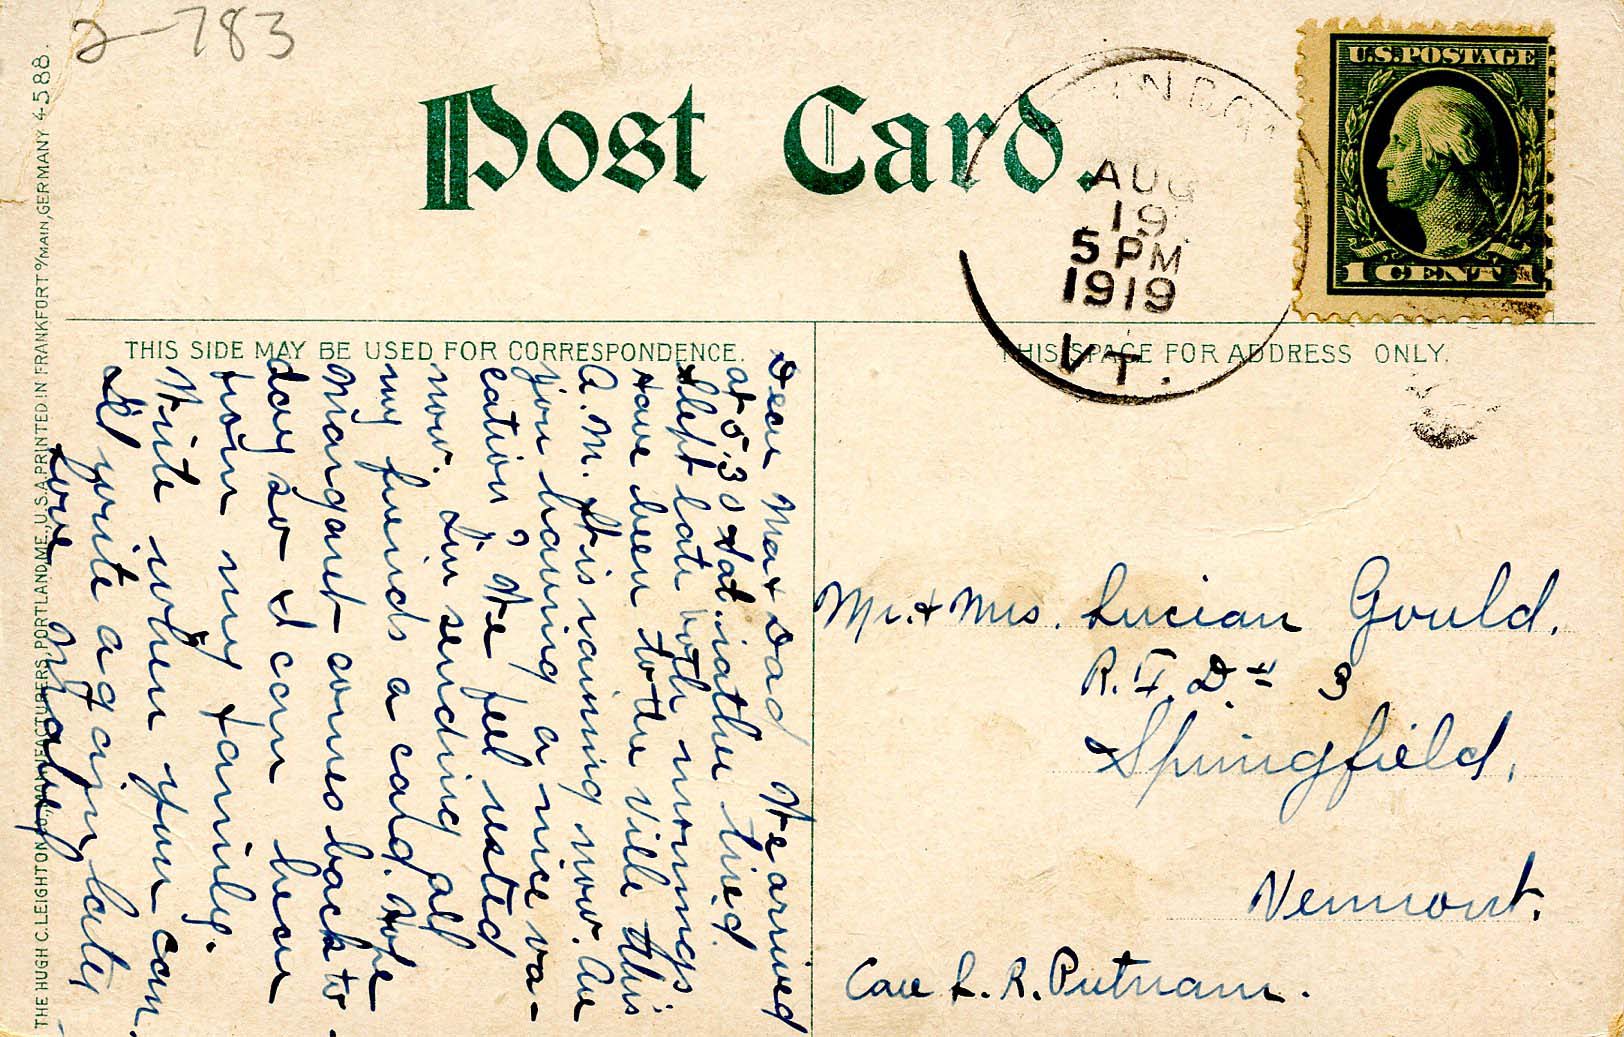 2-783
Post Card.
U.S. POSTAGE
1 CENT 1
AUG
19
5 PM
1919
VT.
THIS SIDE MAY BE USED FOR CORRESPONDENCE.
THIS SPACE FOR ADDRESS ONLY.
THE HUGH C. LEIGHTON CO., MANUFACTURERS, PORTLAND, ME., U.S.A. PRINTED IN FRANKFORT o/MAIN, GERMANY 4588.
Dear Ma & Dad We arrived
at 5.30 Sat. rather tired.
Slept late both mornings
Have been to the ville this
A.M. It is raining now. Are
you having a nice va-
cation? We feel rested
now. Im sending all
my friends a card. Hope
Margaret comes back to-
day so I can hear
from my family.
Write when you can.
I'll write again later
Love Mabel
Mr. & Mrs. Lucian Gould.
R.F.D. # 3
Springfield,
Vermont.
Care L. R. Putnam.